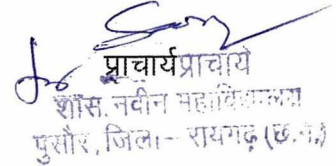 प्राचार्य प्राचार्य
शास. नवीन महाविद्यालय
पुसौर, जिला - रायगढ़ (छ.ग.)